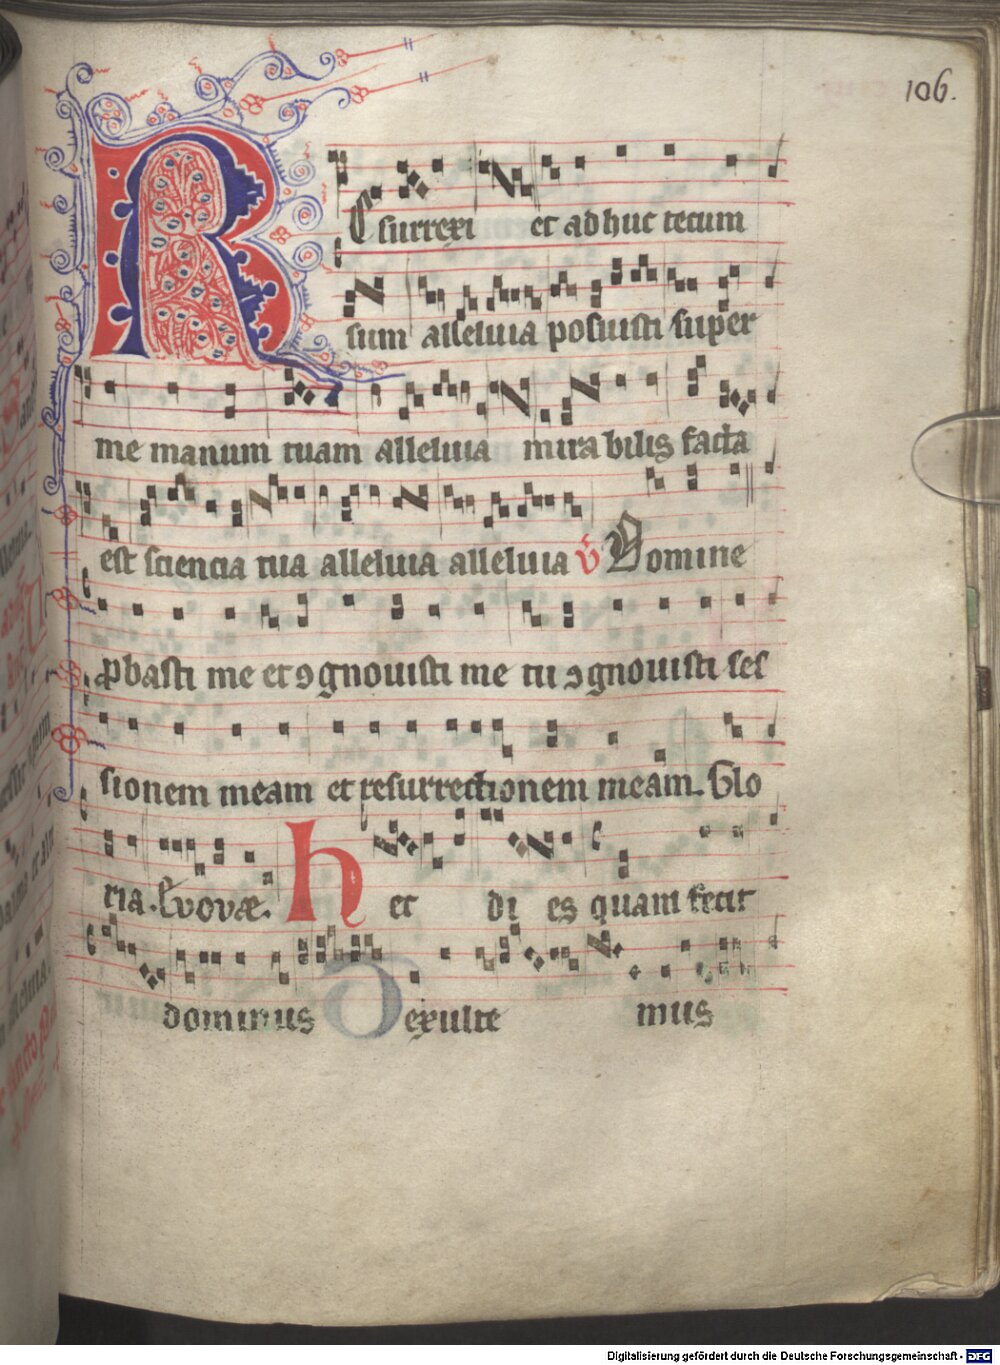 106.
REsurrexi et adhuc tecum
sum alleluia posuisti super
me manum tuam alleluia mirabilis facta
est sciencia tua alleluia alleluia v Domine
pbasti me et ꝯgnouisti me tu ꝯgnouisti ses
sionem meam et resurrectionem meam. Glo
ria. Evovæ. hec di es quam fecit
dominus exulte mus
Digitalisierung gefördert durch die Deutsche Forschungsgemeinschaft - DFG